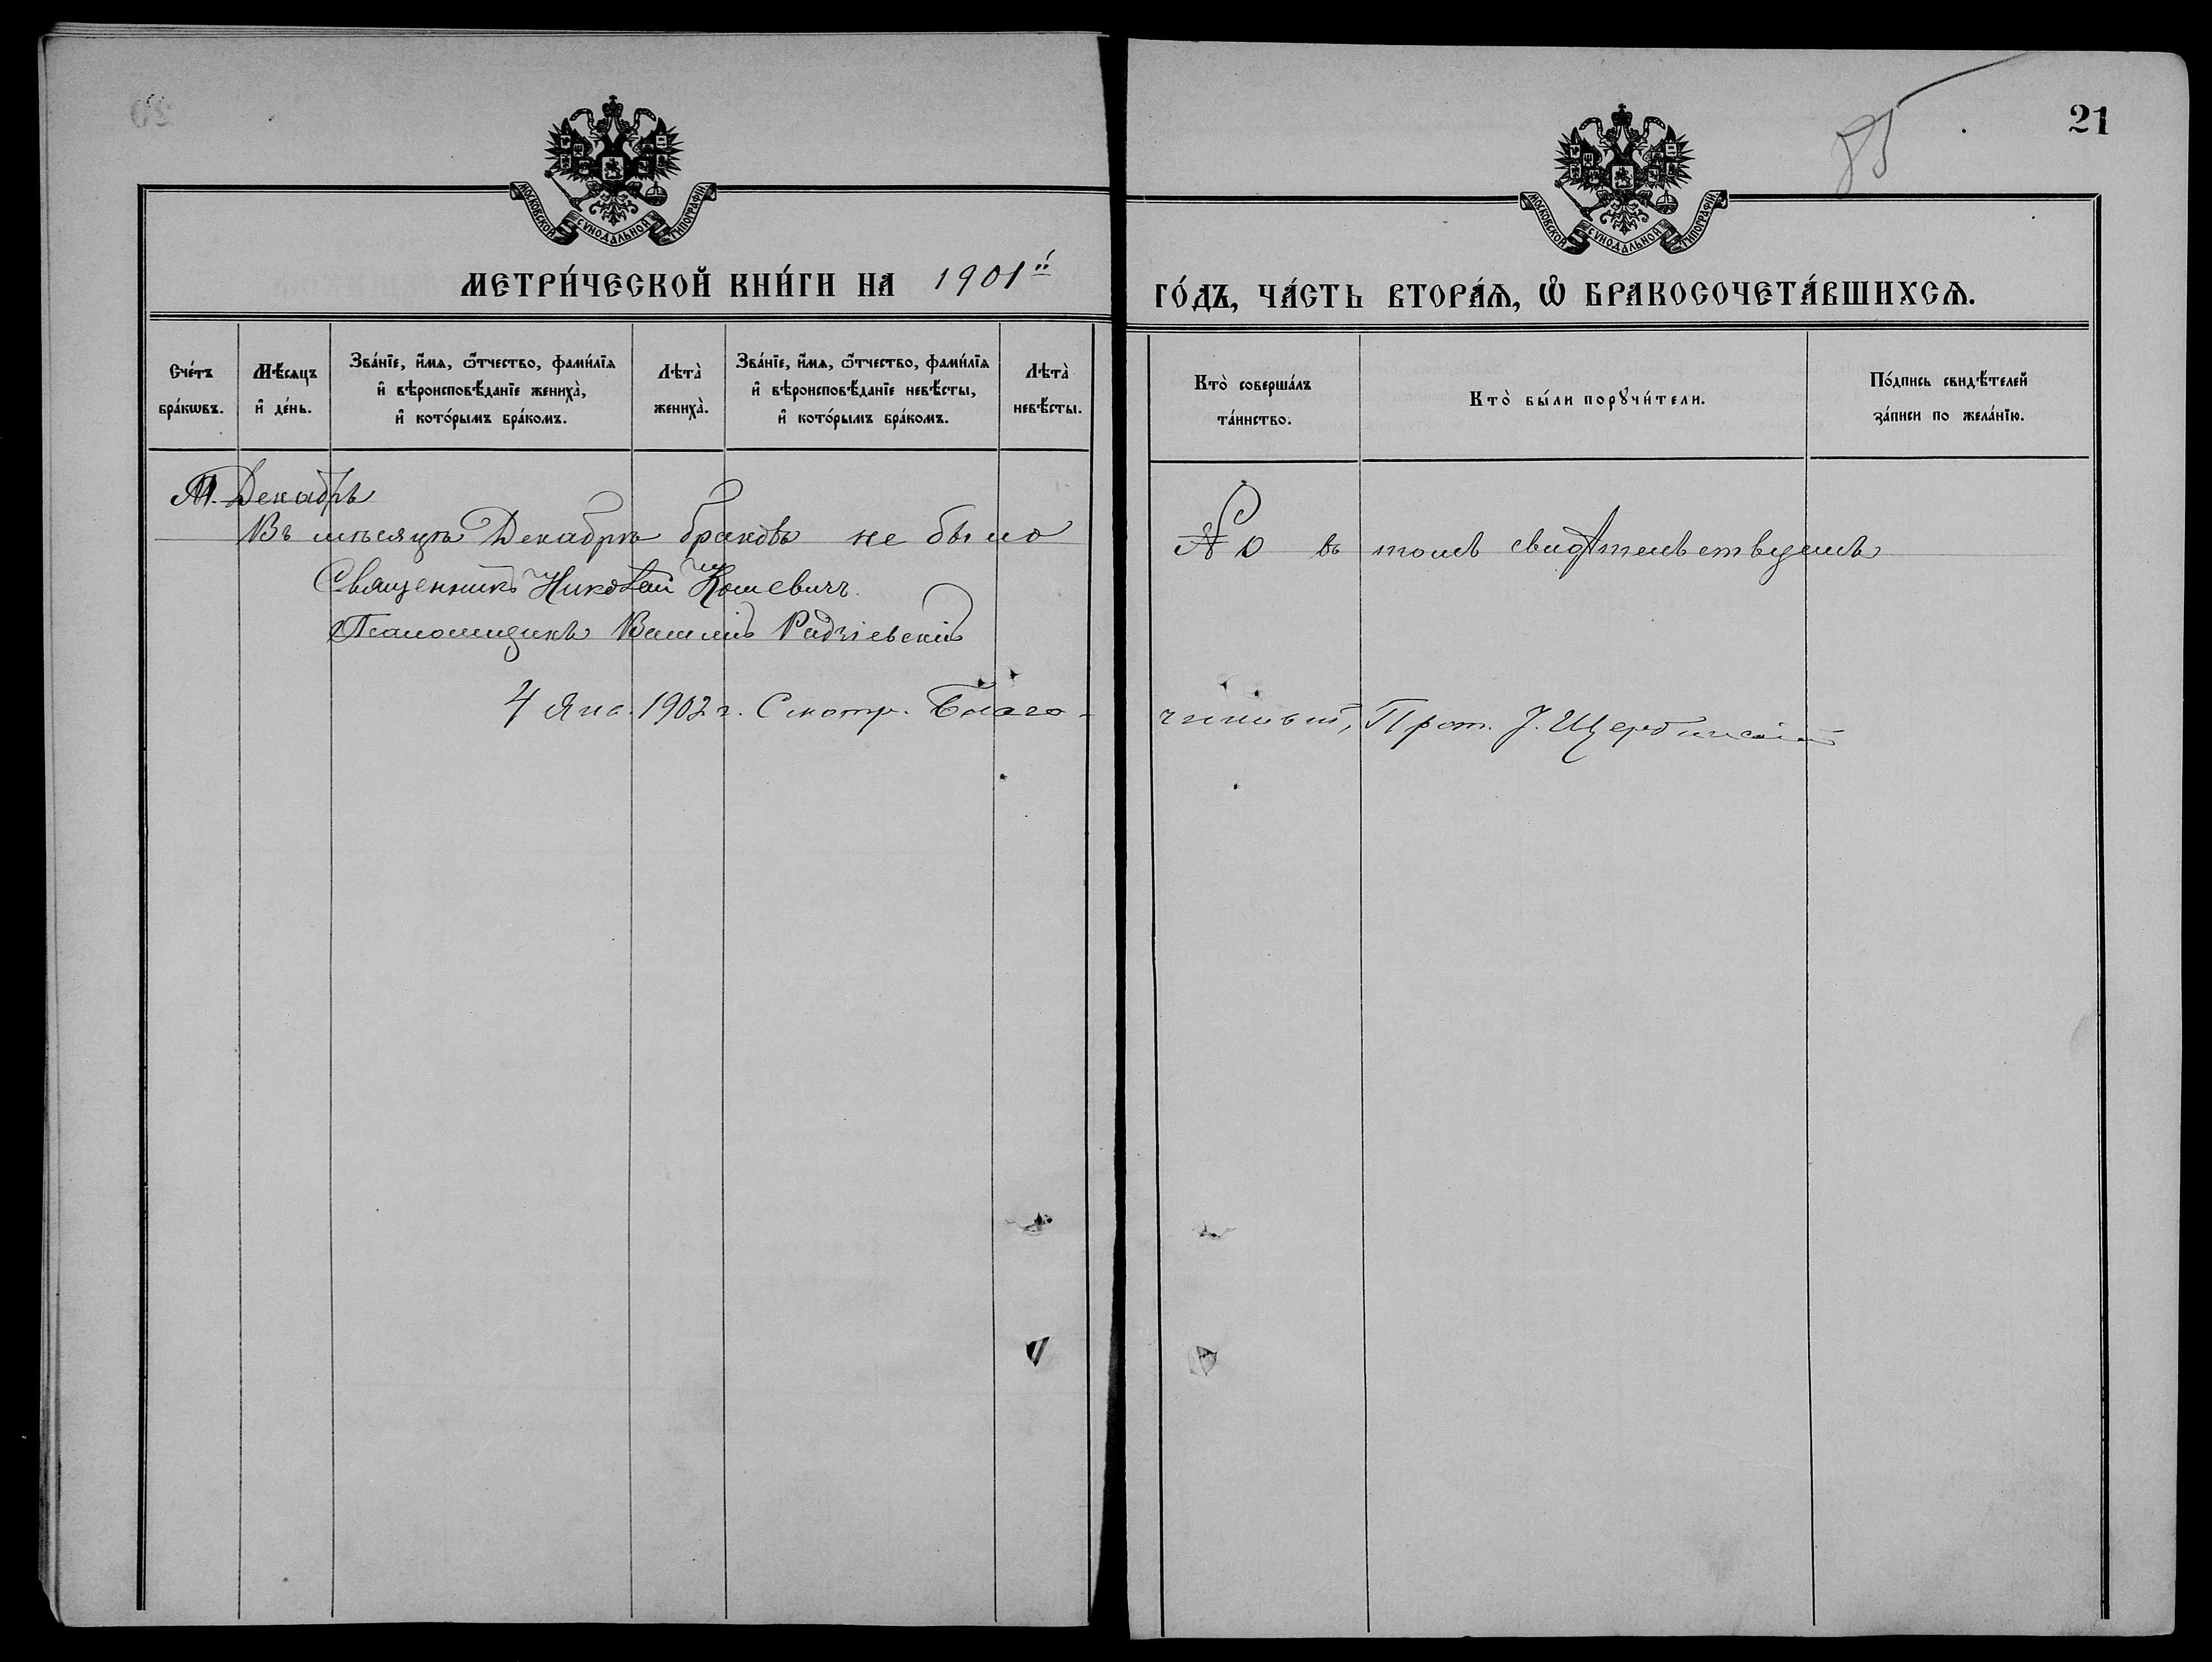 21
85
МОСКОВСКОЙ СѴНОДАЛЬНОЙ ТИПОГРАФІИ
МОСКОВСКОЙ СѴНОДАЛЬНОЙ ТИПОГРАФІИ
МЕТРИ́ЧЕСКОЙ КНИ́ГИ НА 1901й
ГО́ДЪ, ЧА́СТЬ ВТОРА́Ѧ, Ѽ БРАКОСОЧЕТА́ВШИХСѦ.
Сче́тъ бра́кѡвъ.
Мѣ́сяцъ и҆ де́нь.
Зва́нїе, и҆́мѧ, ѻ҆́тчество, фами́лїѧ
и҆ вѣроисповѣ́данїе жениха̀,
и҆ кото́рымъ бра́комъ.
Лѣта̀ жениха̀.
Зва́нїе, и҆́мѧ, ѻ҆́тчество, фами́лїѧ
и҆ вѣроисповѣ́данїе невѣ́сты,
и҆ кото́рымъ бра́комъ.
Лѣта̀ невѣ́сты.
Кто̀ соверша́лъ та́инство.
Кто̀ бы́ли порꙋчи́тели.
По́дпись свидѣ́телей за́писи по жела́нїю.
М. Декабрь
Въ мѣсяцѣ Декабрѣ браковъ не было
въ томъ свидѣтельствуемъ
Священникъ Николай
Псаломщикъ Василій Радзіевскій
4 Янв. 1902 г. Смотр. Благо-
чинный, Прот. І. Щербинскій